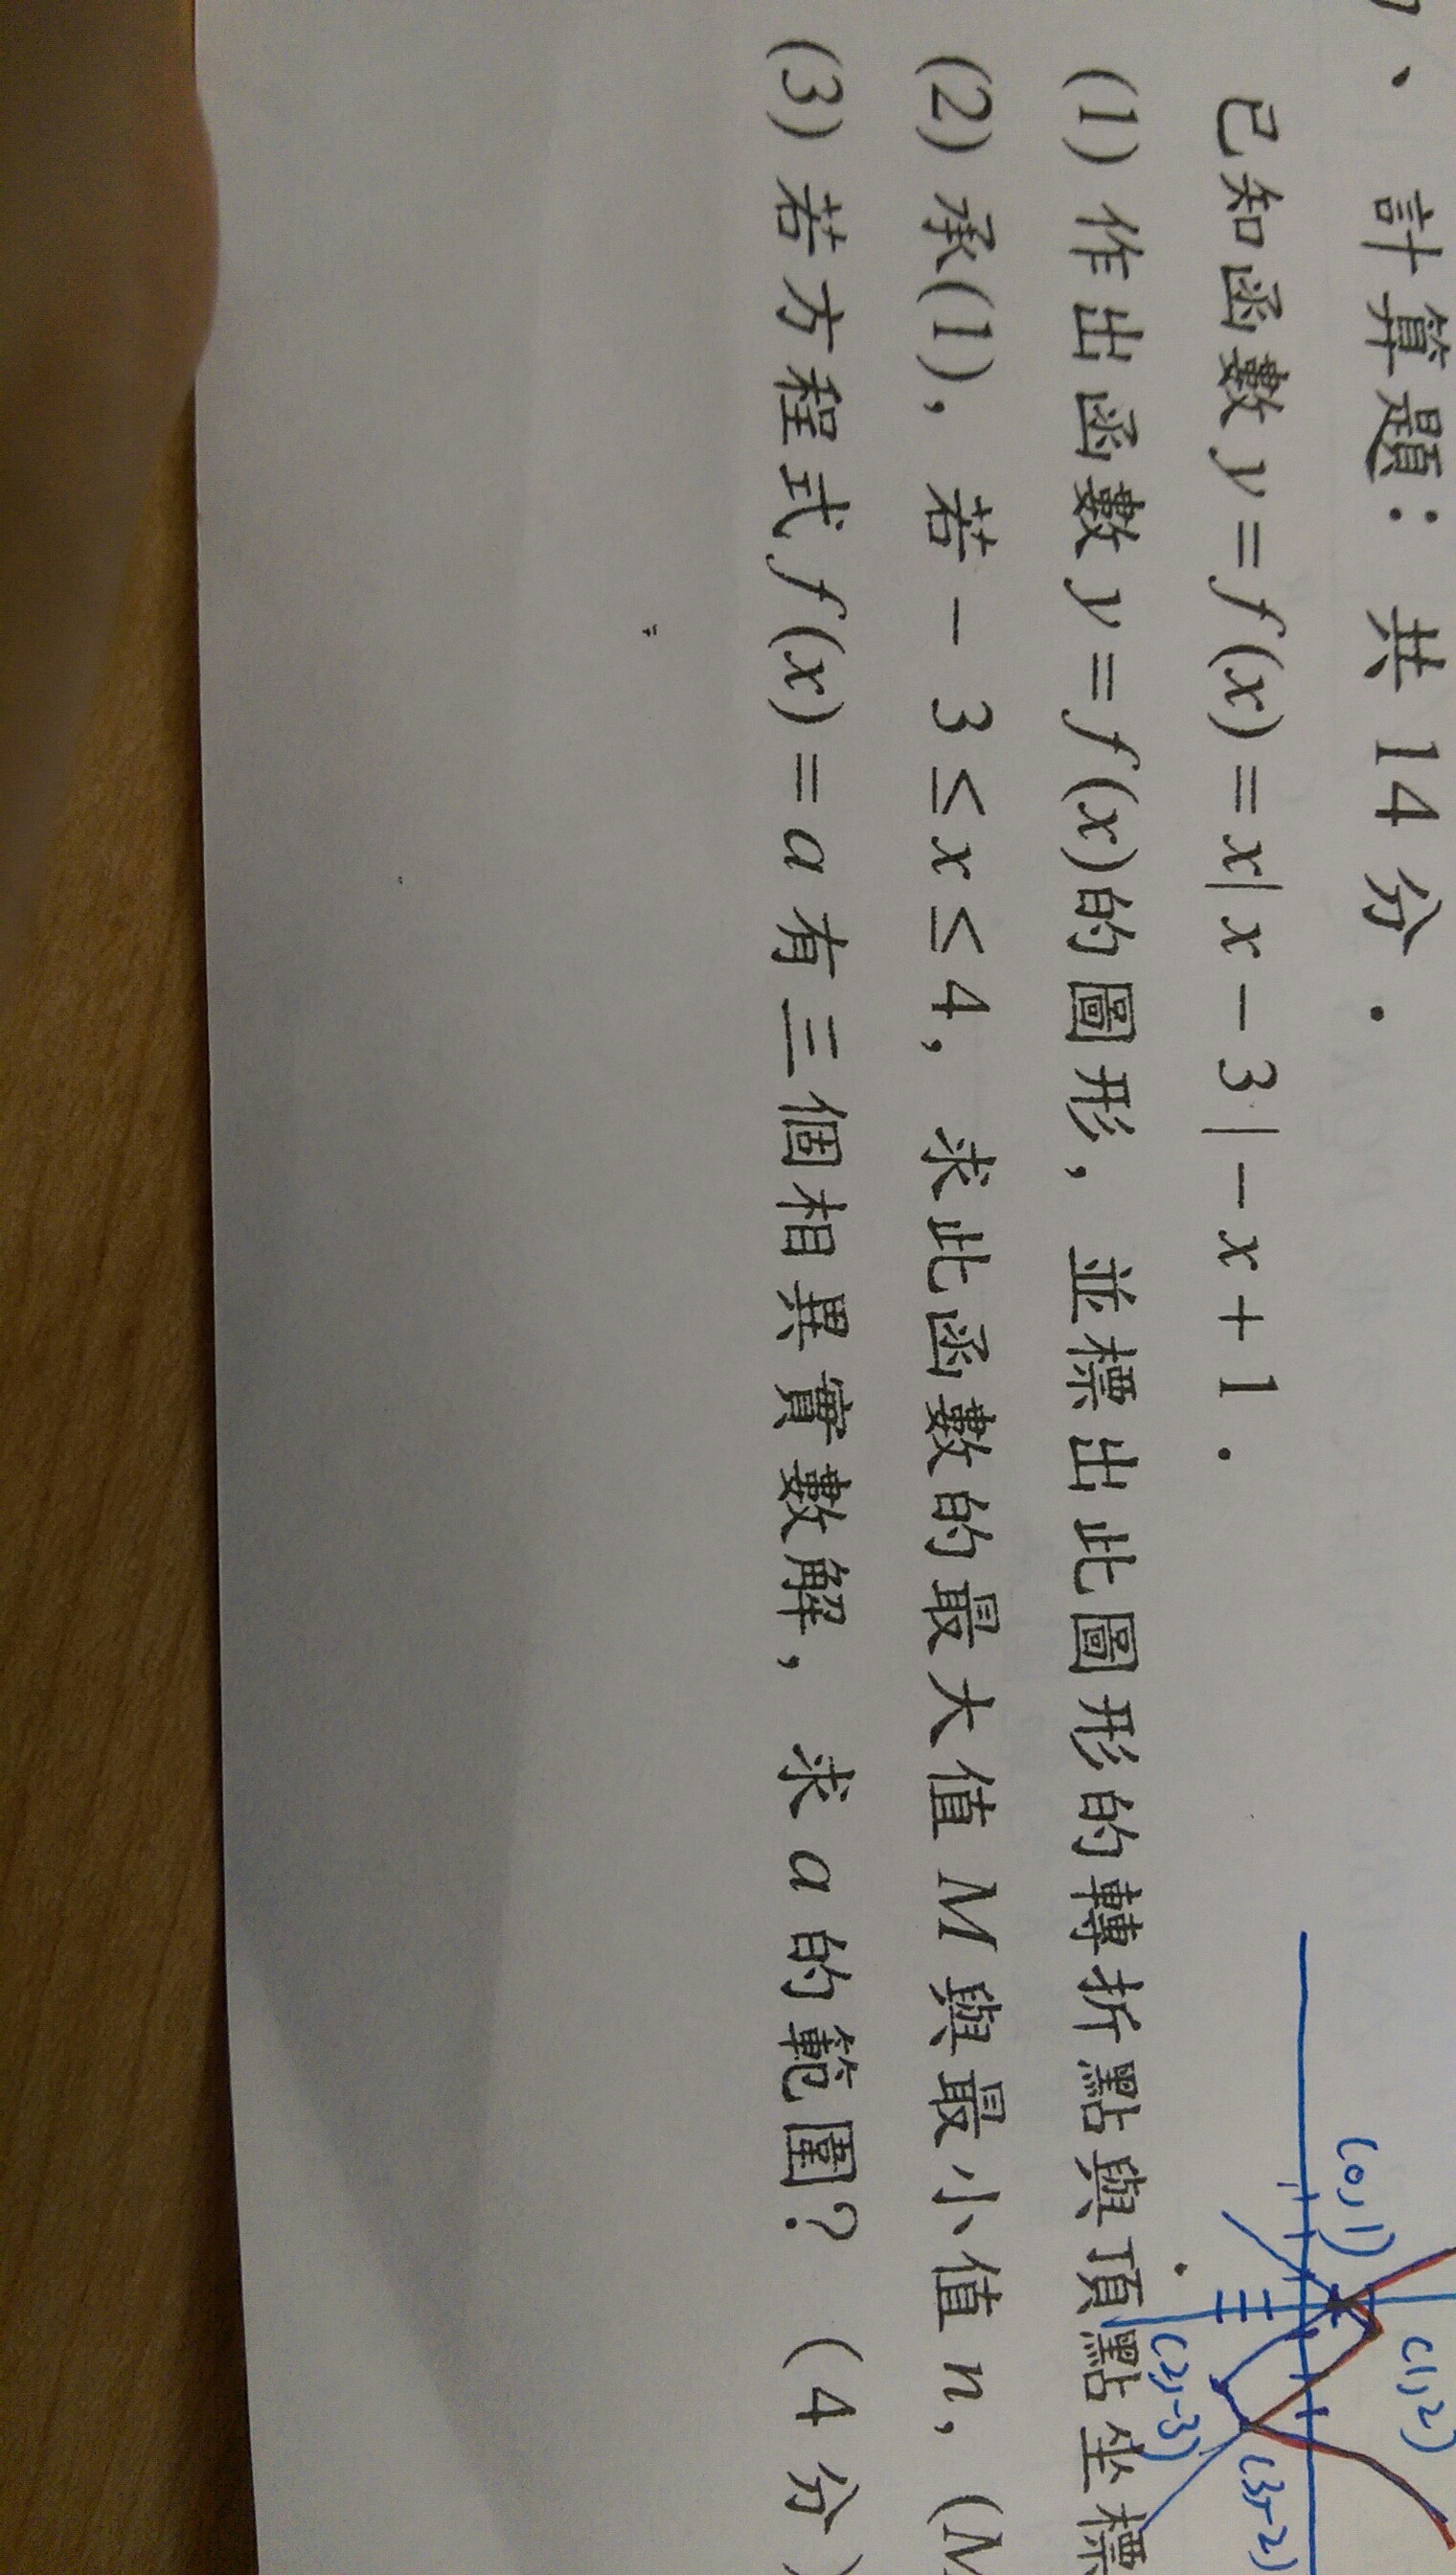 、計算題：共 14 分．
已知函數 y = f(x) = x| x - 3 | - x + 1．
(1) 作出函數 y = f(x)的圖形，並標出此圖形的轉折點與頂點坐標
(2) 承(1)，若 - 3 ≤ x ≤ 4，求此函數的最大值 M 與最小值 n，(M
(3) 若方程式 f(x) = a 有三個相異實數解，求 a 的範圍？（4 分）
(0,1)
(1,2)
(2,-3)
(3,-2)